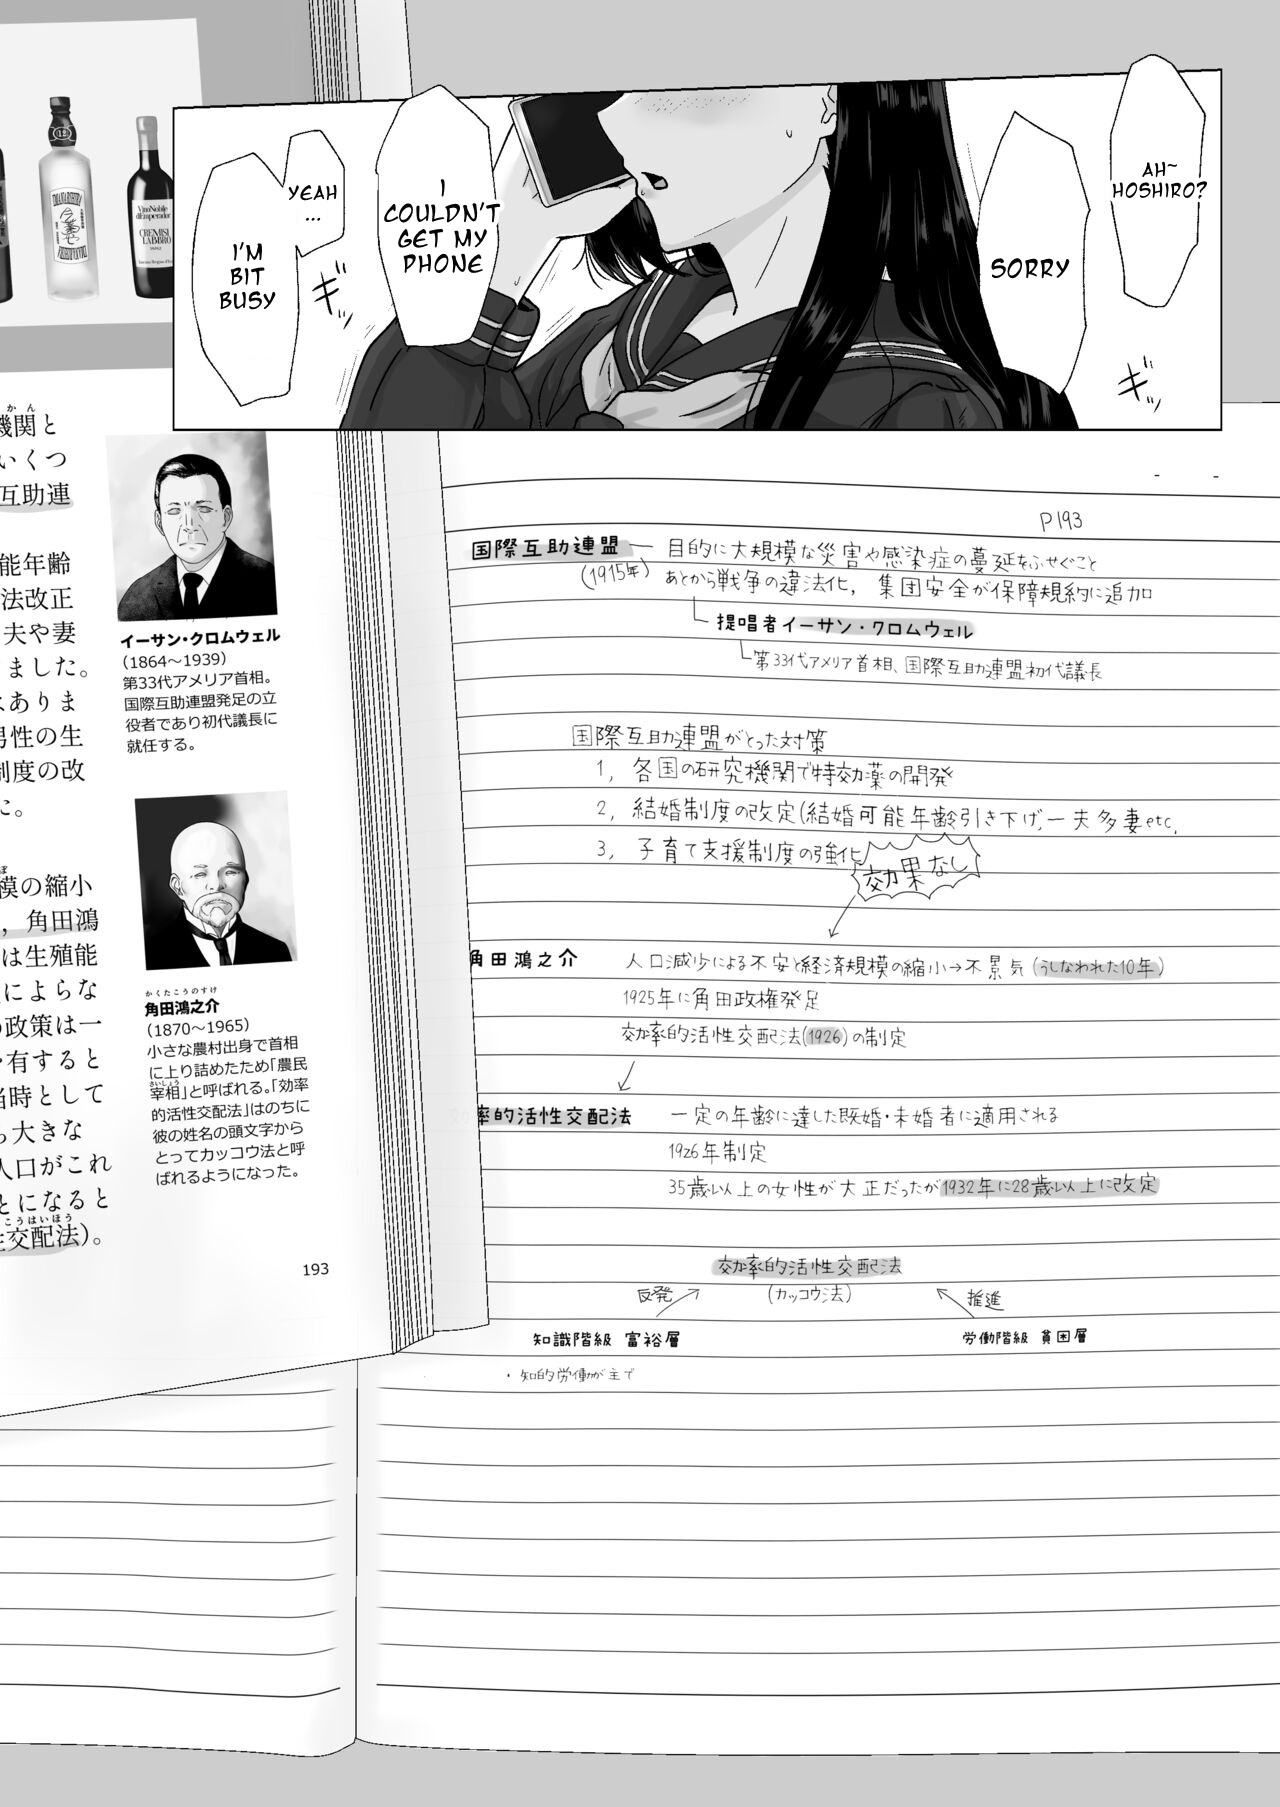 AH~
HOSHIRO?
SORRY
I
COULDN'T
GET MY
PHONE
YEAH
...
I'M
BIT
BUSY
ギッ
ギシ
12
VinoNobile
d'Emperador
CREMISI
LABBRO
かん
機関と
いくつ
互助連
能年齢
法改正
夫や妻
りました。
はありま
男性の生
制度の改
た。
模の縮小
，角田鴻
は生殖能
によらな
の政策は一
有すると
当時として
ら大きな
人口がこれ
とになると
こうはいほう
性交配法）。
イーサン・クロムウェル
（1864〜1939）
第33代アメリア首相。
国際互助連盟発足の立
役者であり初代議長に
就任する。
かくたこうのすけ
角田鴻之介
（1870〜1965）
小さな農村出身で首相
に上り詰めたため「農民
さいしょう
宰相」と呼ばれる。「効率
的活性交配法」はのちに
彼の姓名の頭文字から
とってカッコウ法と呼
ばれるようになった。
193
P193
国際互助連盟 ― 目的に大規模な災害や感染症の蔓延をふせぐこと
(1915年) あとから戦争の違法化, 集団安全が保障規約に追加
提唱者イーサン・クロムウェル
第33代アメリア首相、国際互助連盟初代議長
国際互助連盟がとった対策
1, 各国の研究機関で特効薬の開発
2, 結婚制度の改定(結婚可能年齢引き下げ, 一夫多妻etc,
3, 子育て支援制度の強化
効果なし
角田鴻之介 人口減少による不安と経済規模の縮小→不景気(うしなわれた10年)
1925年に角田政権発足
効率的活性交配法(1926)の制定
効率的活性交配法 一定の年齢に達した既婚・未婚者に適用される
1926年制定
35歳以上の女性が大正だったが1932年に28歳以上に改定
効率的活性交配法
(カッコウ法)
反発 推進
知識階級 富裕層 労働階級 貧困層
・知的労働が主で